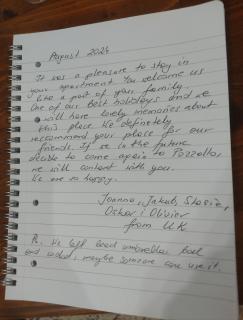 August 2024
It was a pleasure to stay in
your apartment. You welcome us
like a part of your family.
One of our best holidays and we
will have lovely memories about
this place. We definetely
recommend your place for our
friends. If we in the future
decide to come again to Pozzallo,
we will contact with you.
We are so happy.
Joanna, Jakub,
Oskar i Olivier
from UK
Ps. We left good umbrellas, boat
and , maybe someone can use it.